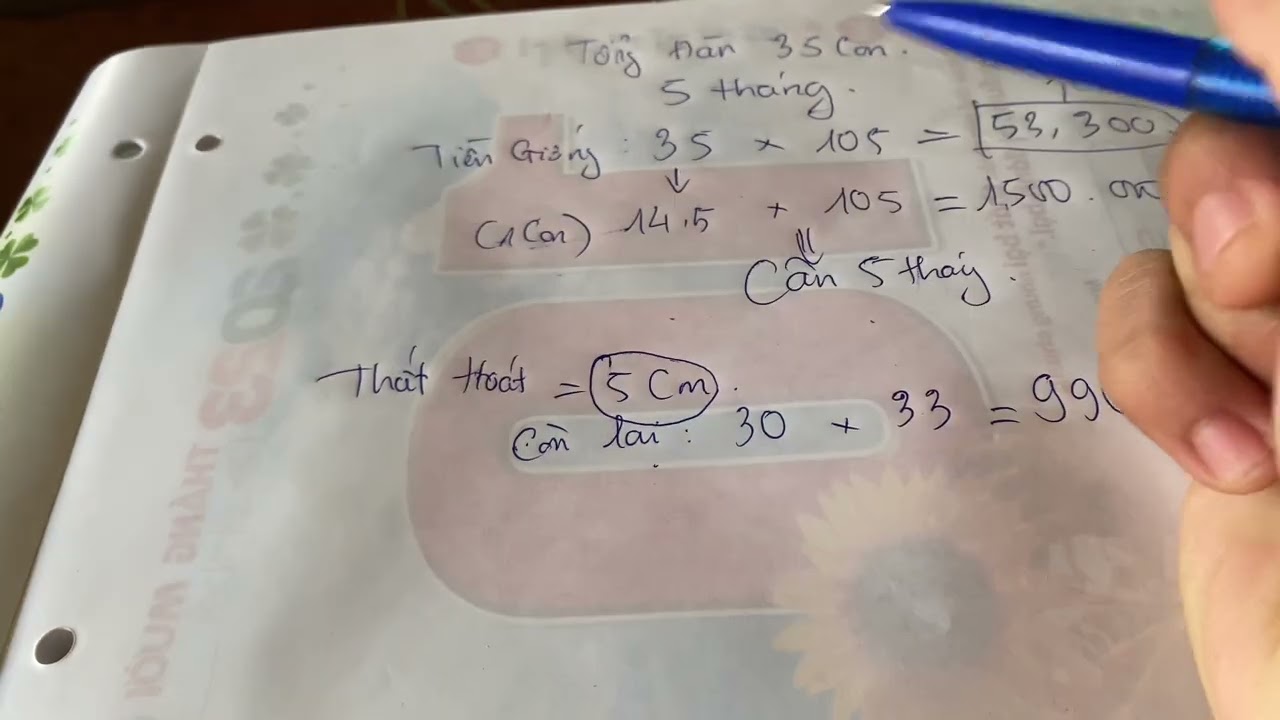 Tổng Đàn 35 Con.
5 tháng.
Tiền Giống : 35 × 105 = 53,300
(1 Con) 14.5 × 105 = 1,500.000
Cần 5 tháy.
Thất Thoát = 5 Con.
Còn lại : 30 × 33 = 990
2023 THÁNG MƯỜI